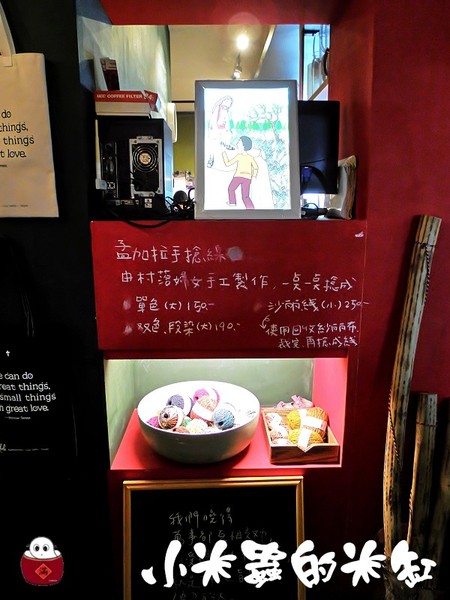 do
things,
things
great love.
NO.1 COFFEE FILTER
孟加拉手捻線
由村落婦女手工製作，一點一點捻成
單色(大)150.-
沙麗線(小)250.-
双色、段染(大)190.-
使用回收紗麗布
裁窄再捻成線
we can do
great things,
small things
with great love.
我們覺得
小米蟲的米缸